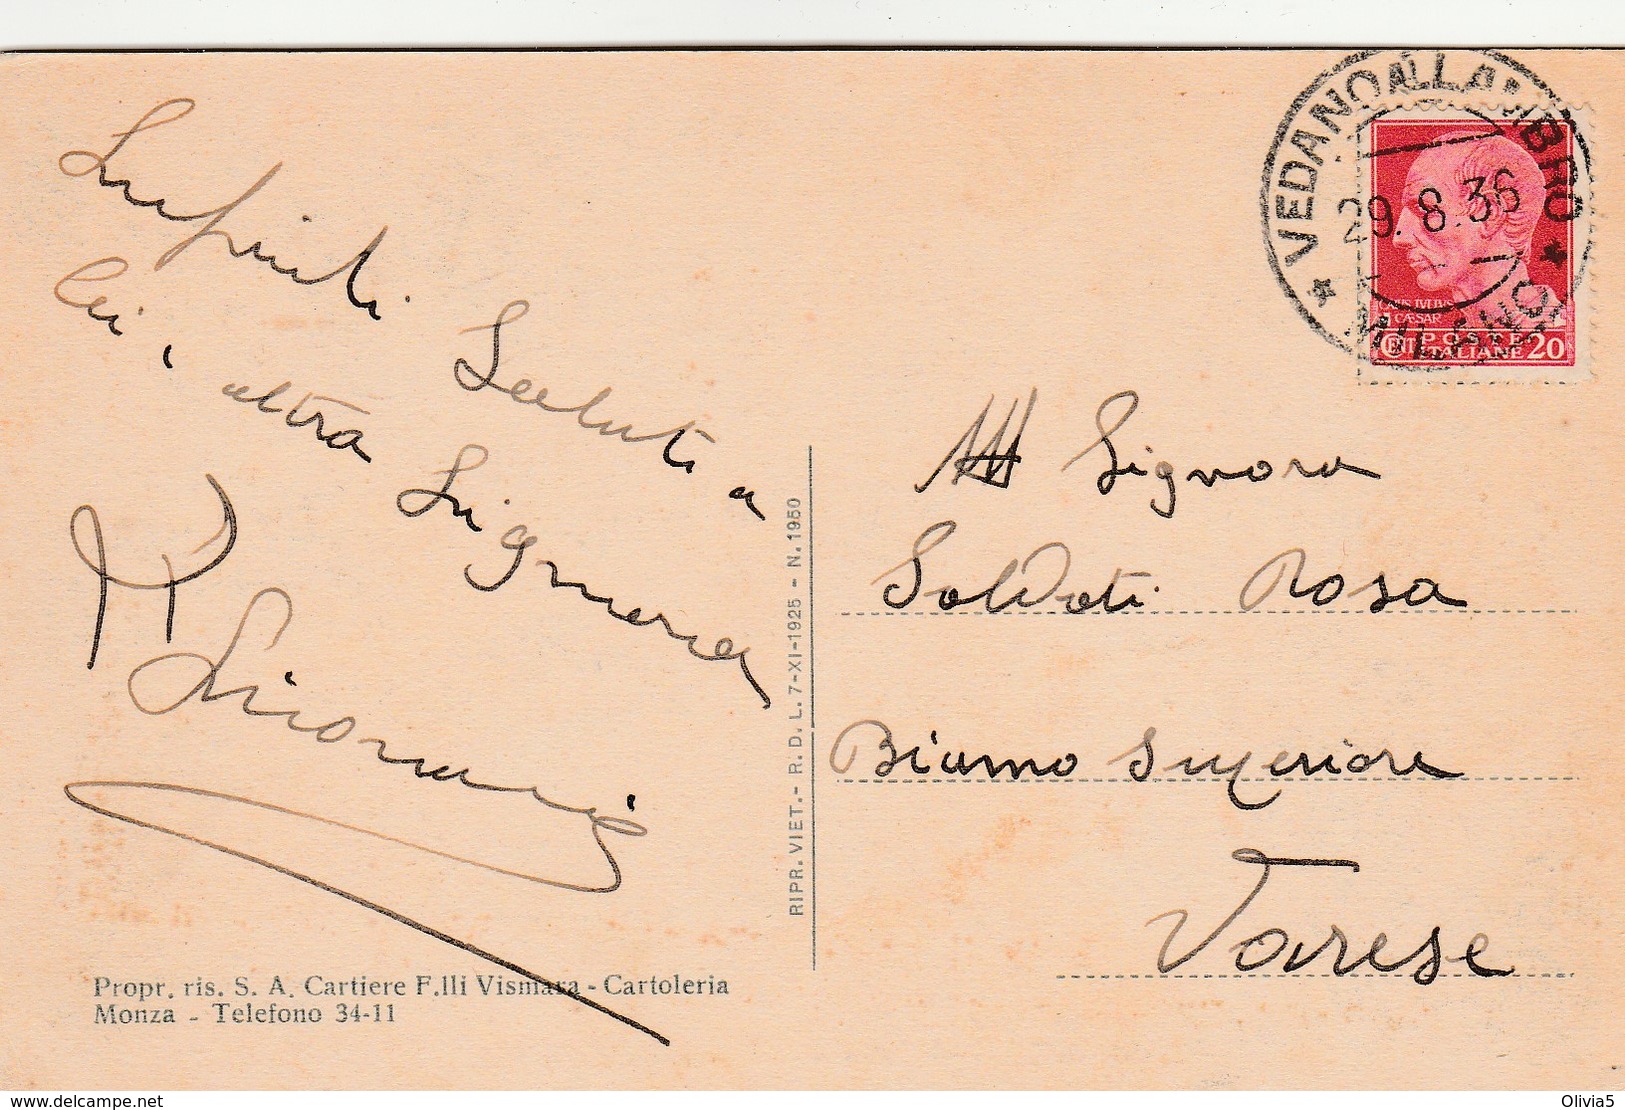 Saluti a
Lei, altra Signora
VEDANO AL LAMBRO
29.8.36
MILANO
CAIVS IVLIVS
CAESAR
POSTE
ITALIANE 20
Signora
Soldati Rosa
Biumo Superiore
Varese
RIPR. VIET.- R. D. L. 7-XI-1925 - N. 1950
Propr. ris. S. A. Cartiere F.lli Vismara - Cartoleria
Monza - Telefono 34-11
www.delcampe.net
Olivia5